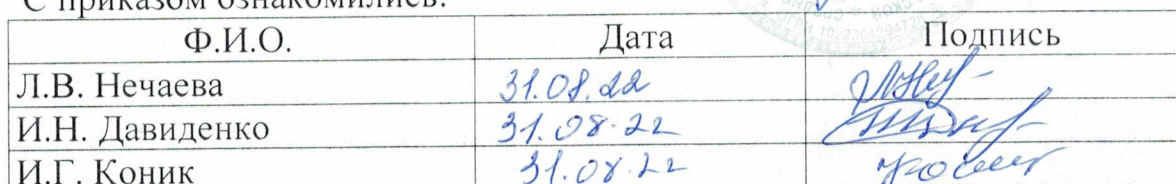 С приказом ознакомились:
Ф.И.О. Дата Подпись
Л.В. Нечаева 31.08.22
И.Н. Давиденко 31.08.22
И.Г. Коник 31.08.22